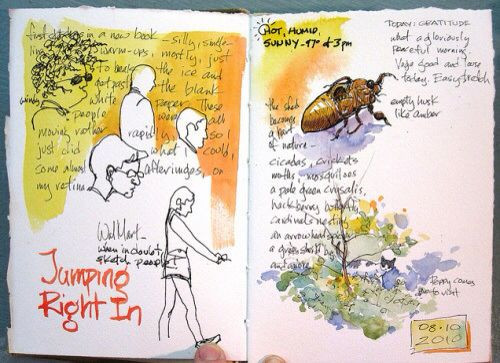 first sketches in a new book - silly, simple
line warm-ups, mostly, just
to break the ice and
get past the blank
white paper. These
people were all
moving rather rapidly so I
just did what I could,
some almost afterimages, on
my retina
windy
WalMart-
when in doubt,
sketch people!
Jumping
Right In
HOT, HUMID,
SUNNY - 97° @ 3pm
TODAY: GRATITUDE
what a gloriously
peaceful morning.
Yoga good and loose
today. Easy stretch
empty husk
like amber
the shed
becomes
a part
of nature -
cicadas, crickets
moths, mosquitoes
a pale green crysalis,
hackberry butterfly
cardinals nesting
an arrowhead
a green
and
Poppy comes
to visit
08·10
2010